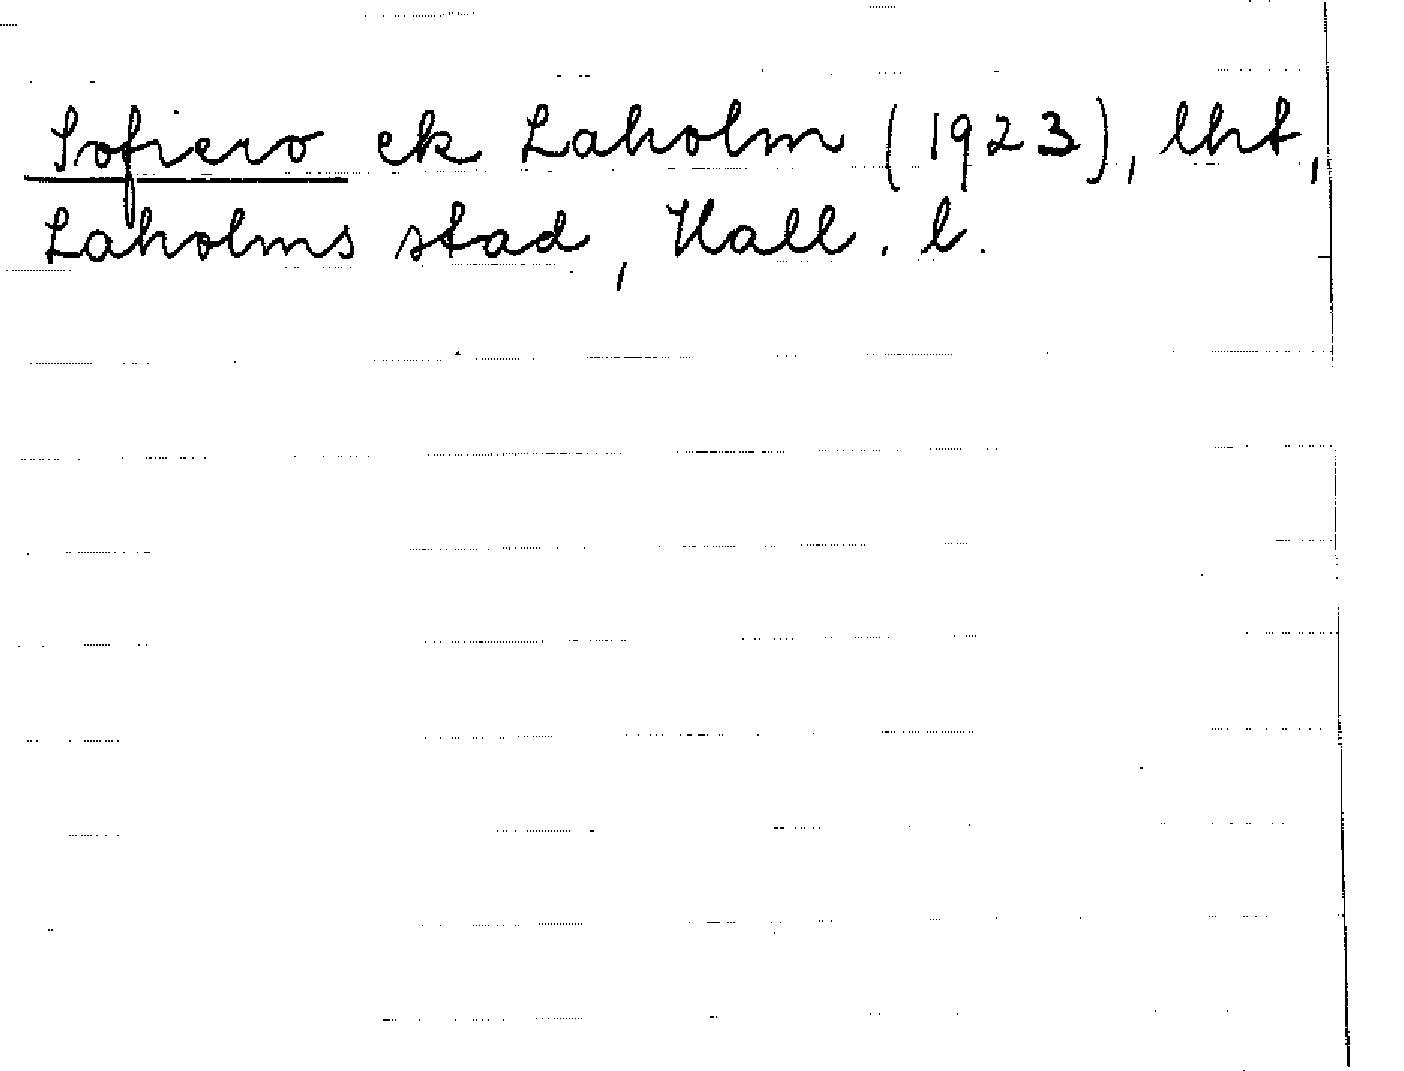 Sofiero ek Laholm (1923), lht,
Laholms stad, Hall. l.